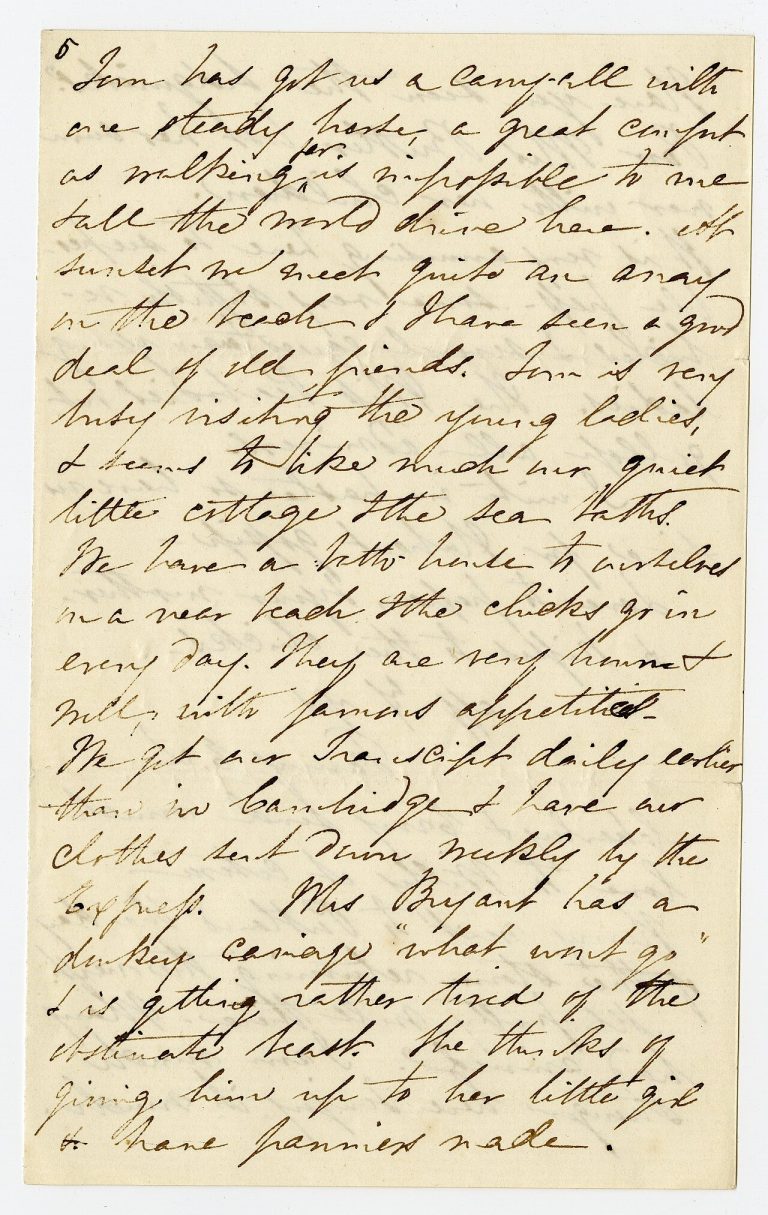 5
Tom has got us a carry-all with
one steady horse, a great comfort
as walking far is impossible to me
& all the world drive here. At
sunset we meet quite an array
on the beach & I have seen a good
deal of old friends. Tom is very
busy visiting the young ladies,
& seems to like much our quiet
little cottage & the sea baths.
We have a bath house to ourselves
on a near beach & the chicks go in
every day. They are very brown &
well, with famous appetites.
We get our Transcript daily earlier
than in Cambridge & have our
clothes sent down weekly by the
Express. Mrs Bryant has a
donkey carriage "what wont go"
& is getting rather tired of the
obstinate beast. She thinks of
giving him up to her little girl
& have panniers made.